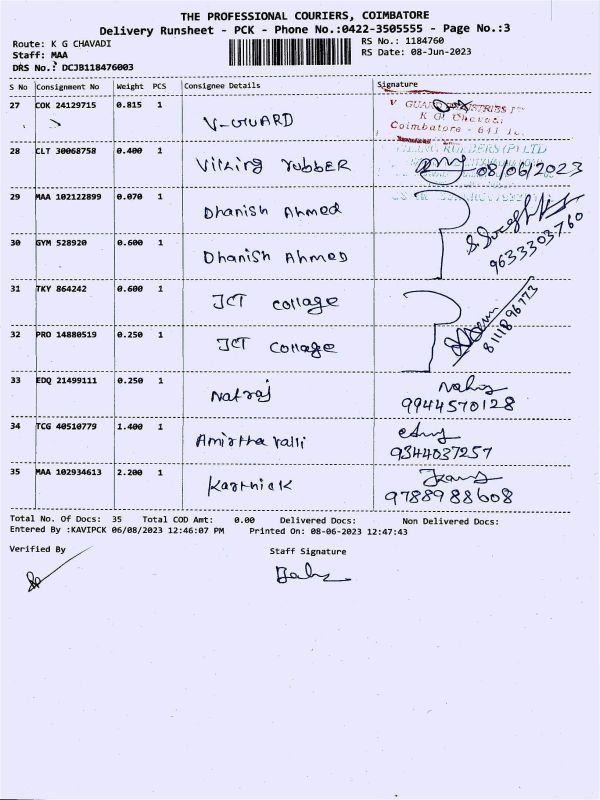 THE PROFESSIONAL COURIERS, COIMBATORE
Delivery Runsheet - PCK - Phone No.:0422-3505555 - Page No.:3
Route: K G CHAVADI
RS No.: 1184760
Staff: MAA
RS Date: 08-Jun-2023
DRS No.: DCJB118476003
S No Consignment No Weight PCS Consignee Details Signature
27 COK 24129715 0.815 1 V-GUARD
V GUARD INDUSTRIES
K G Chavadi
Coimbatore - 641
28 CLT 30068758 0.400 1 Viking rubber 08/06/2023
29 MAA 102122899 0.070 1 Dhanish Ahmed
30 GYM 528920 0.600 1 Dhanish Ahmed
9633303760
31 TKY 864242 0.600 1 JCT collage
32 PRO 14880519 0.250 1 JCT collage
8111896723
33 EDQ 21499111 0.250 1 Natraj
9944570128
34 TCG 40510779 1.400 1 Amirtha valli
9344037257
35 MAA 102934613 2.200 1 Karthick
9788988608
Total No. Of Docs: 35 Total COD Amt: 0.00 Delivered Docs: Non Delivered Docs:
Entered By :KAVIPCK 06/08/2023 12:46:07 PM Printed On: 08-06-2023 12:47:43
Verified By Staff Signature